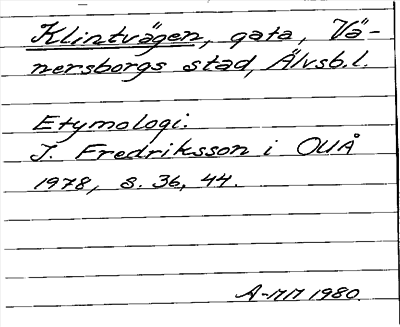 Klintvägen, gata, Vä-
nersborgs stad, Älvsb.l.
Etymologi:
I. Fredriksson i OUÅ
1978, s. 36, 44.
A-MM 1980.